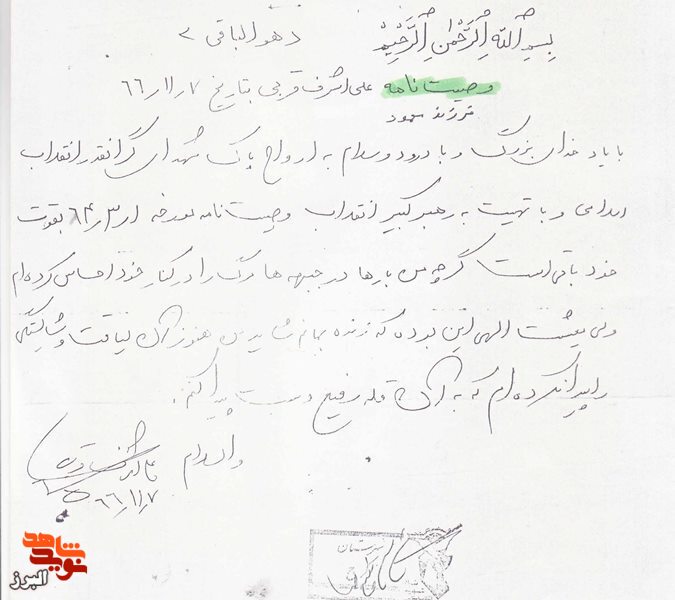 بسم الله الرحمن الرحیم
و هو الباقی
وصیت نامه علی اشرف قربی بتاریخ ۶۶/۱۱/۷
فرزند محمود
با یاد خدای بزرگ و با درود و سلام به ارواح پاک شهدای گرانقدر انقلاب
اسلامی و با تهیت به رهبر کبیر انقلاب وصیت نامه مورخه ۶۴/۳/۱ بقوت
خود باقی است گرچه من بارها در جبهه ها مرگ را در کنار خود احساس کرده ام
ولی مشیت الهی این بوده که زنده بمانم شاید من هنوز آن لیاقت و شایستگی
را پیدا نکرده ام که به آن قله رفیع دست پیدا کنم.
والسلام
علی اشرف
۶۶/۱۱/۷
شاهد
نوید
البرز